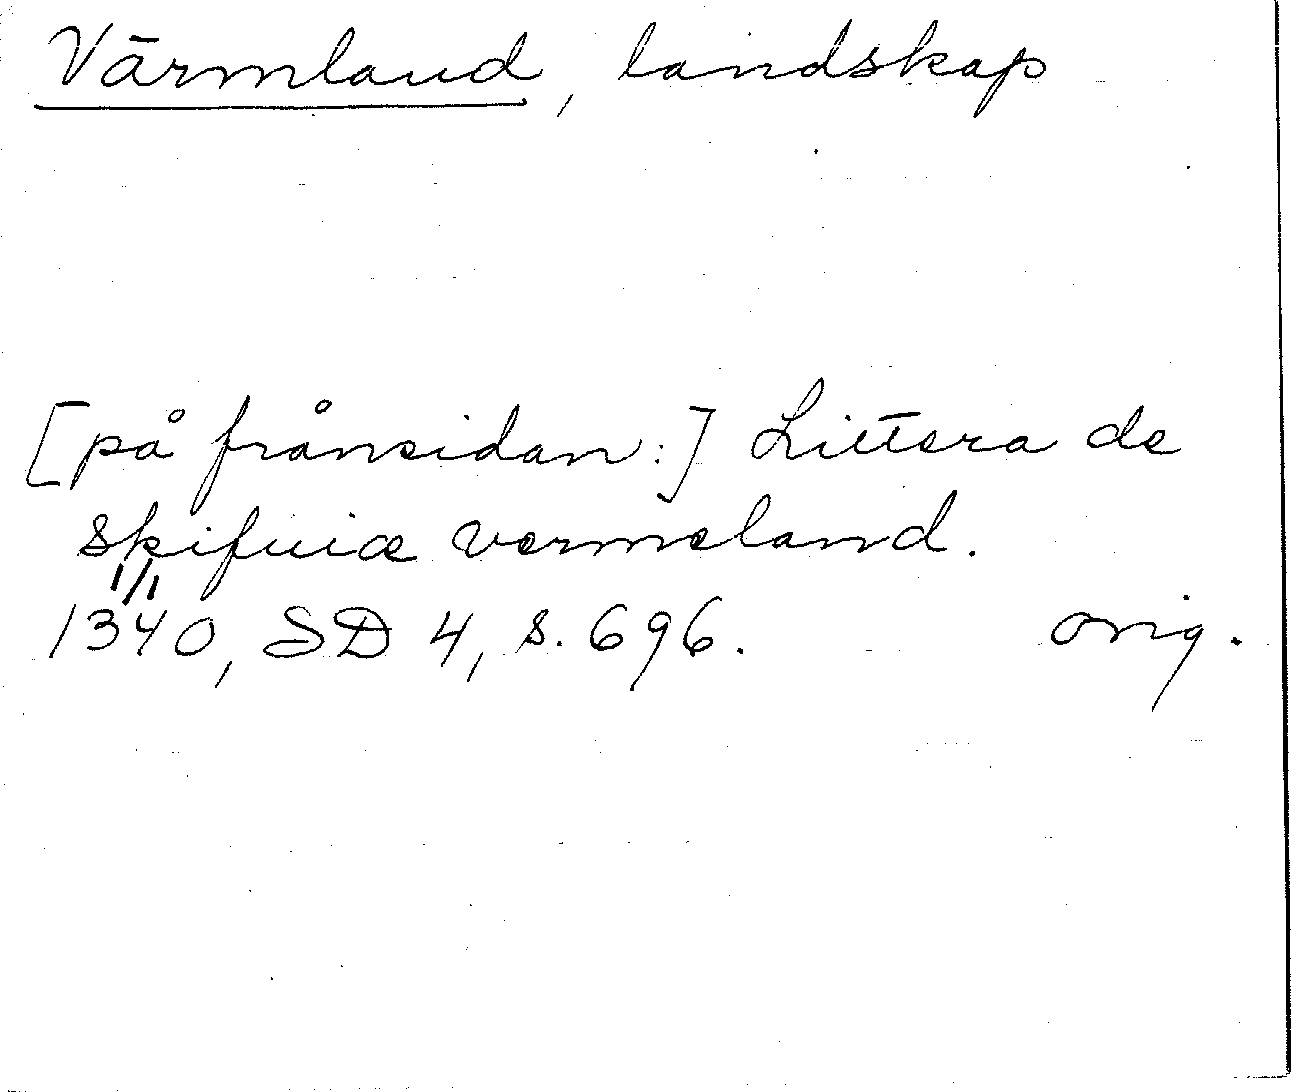 Värmland, landskap
[på frånsidan:] Littera de
skifuiæ vermeland.
1/1
1340, SD 4, s. 696. orig.